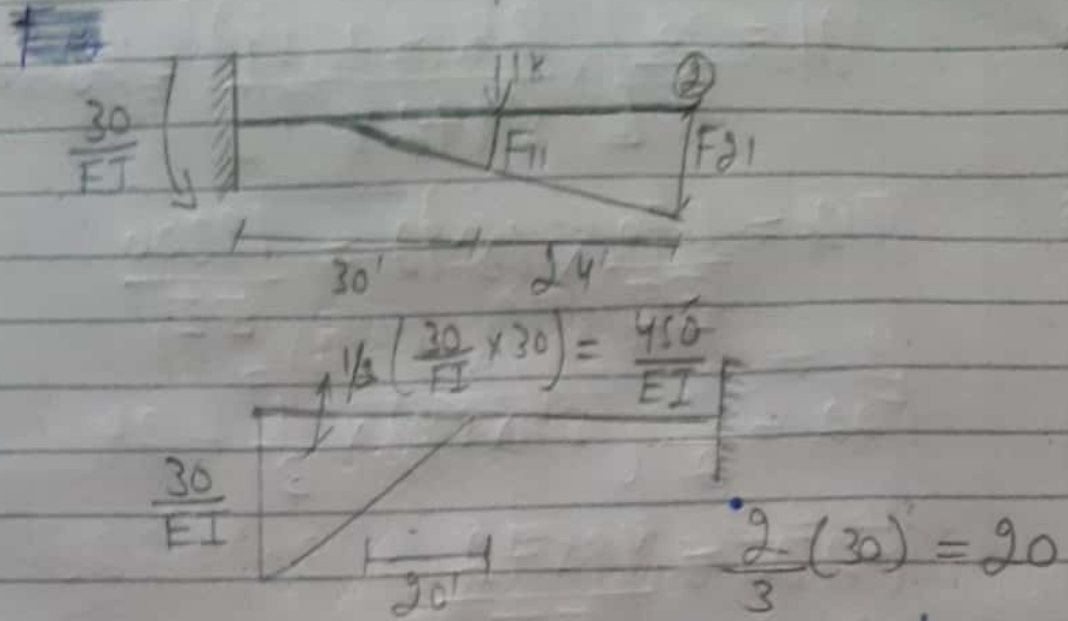 1K
②
30/EI
F11
F21
30' 24'
1/2 (30/EI × 30) = 450/EI
30/EI
20'
2/3 (30)' = 20